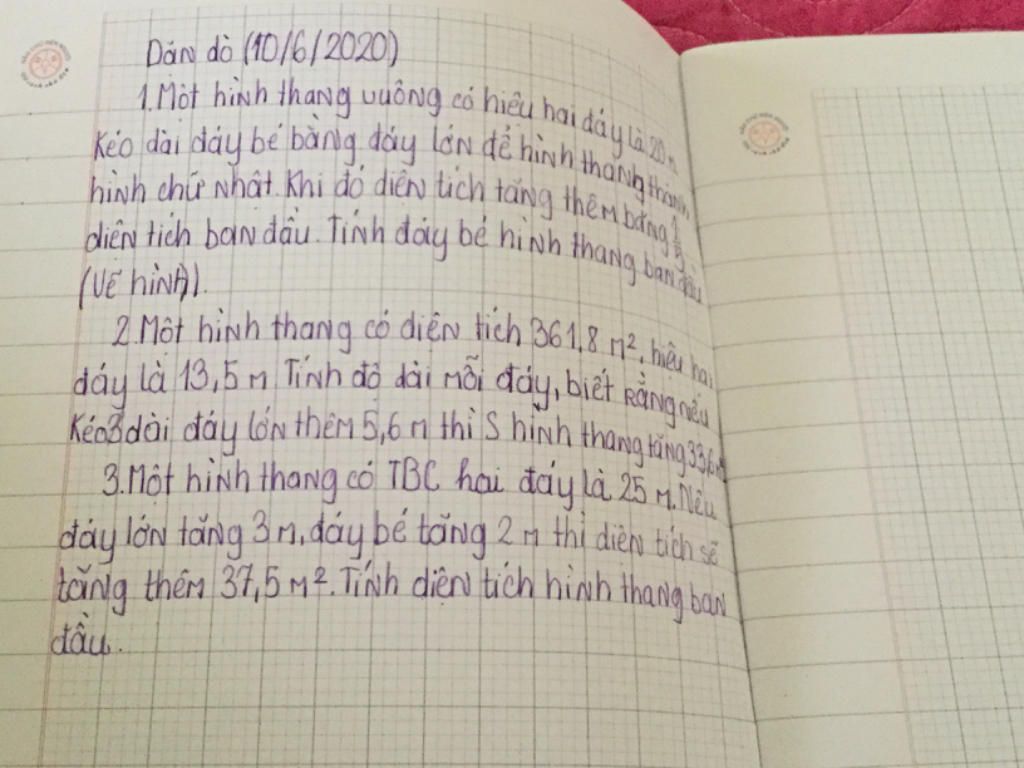 Dán dò (10/6/2020)
1. Một hình thang vuông có hiệu hai đáy là 20 m
Kéo dài đáy bé bằng đáy lớn để hình thang thành
hình chữ nhật. Khi đó diện tích tăng thêm bằng
diện tích ban đầu. Tính đáy bé hình thang ban đầu
(Vẽ hình).
2. Một hình thang có diện tích 361,8 m², hiệu hai
đáy là 13,5 m Tính độ dài mỗi đáy, biết rằng nếu
kéo dài đáy lớn thêm 5,6 m thì S hình thang tăng 33,6 m²
3. Một hình thang có TBC hai đáy là 25 m. Nếu
đáy lớn tăng 3 m, đáy bé tăng 2 m thì diện tích sẽ
tăng thêm 37,5 m². Tính diện tích hình thang ban
đầu.